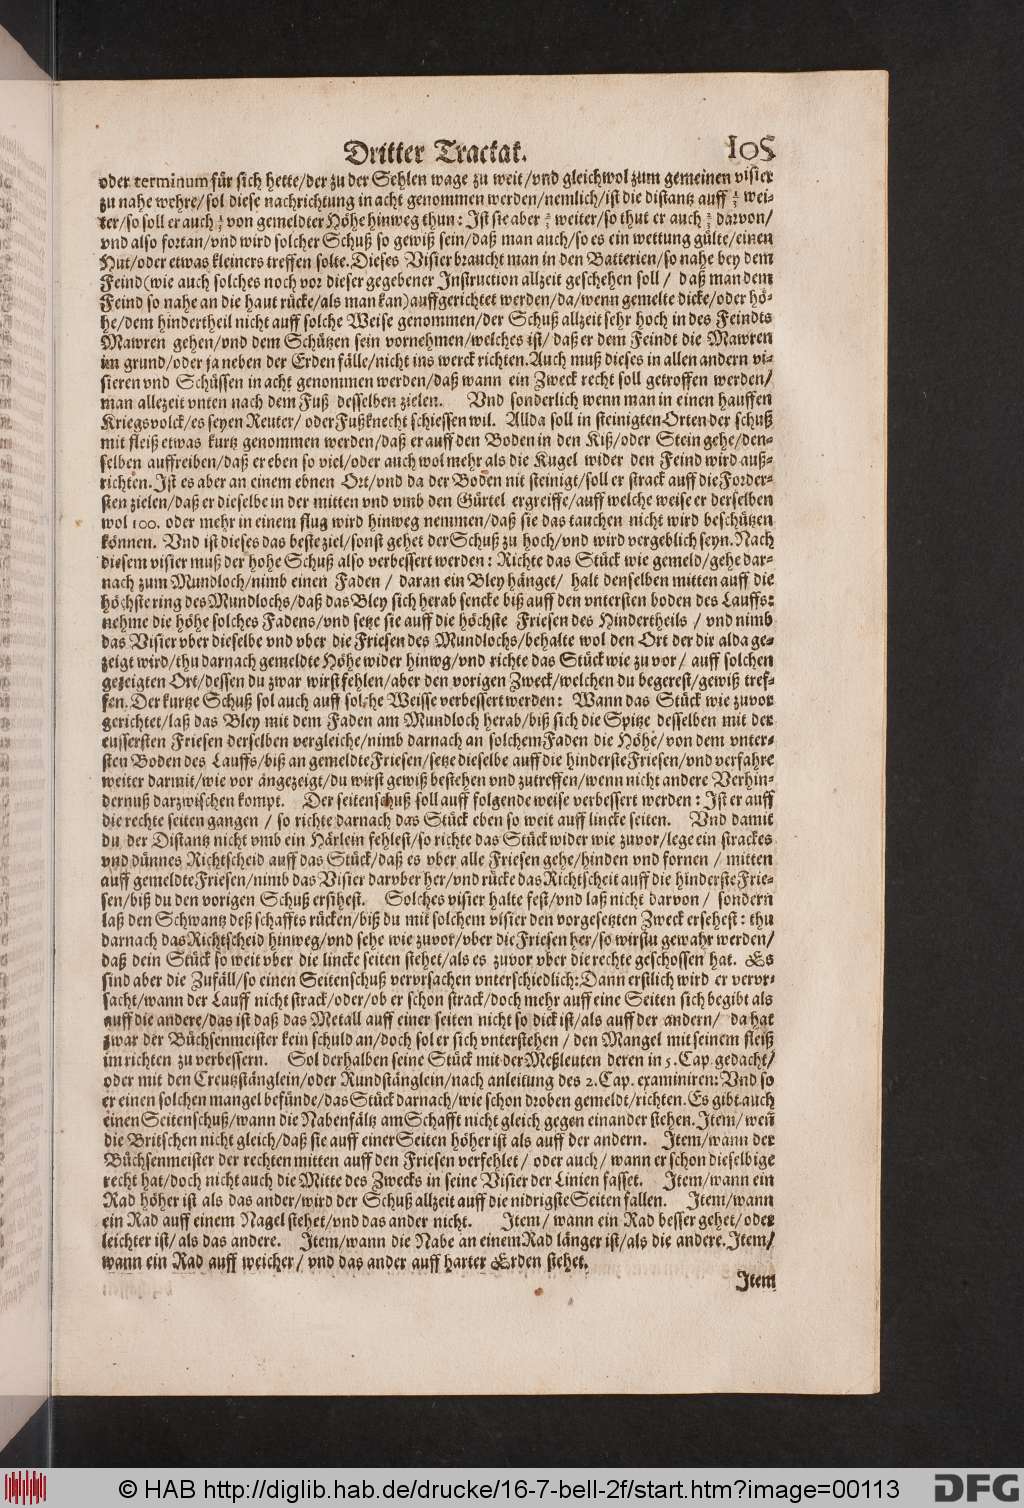 Dritter Tractat. 105
oder terminum für sich hette/der zu der Sehlen wage zu weit/vnd gleichwol zum gemeinen visier
zu nahe wehre/sol diese nachrichtung in acht genommen werden/nemlich/ist die distantz auff wei-
ter/so soll er auch von gemeldter Höhe hinweg thun: Ist sie aber weiter/so thut er auch darvon/
vnd also fortan/vnd wird solcher Schuß so gewiß sein/daß man auch/so es ein wettung gülte/einen
Hut/oder etwas kleiners treffen solte. Dieses Visier braucht man in den Batterien/so nahe bey dem
Feind(wie auch solches noch vor dieser gegebener Instruction allzeit geschehen soll / daß man dem
Feind so nahe an die haut rücke/als man kan)auffgerichtet werden/da/wenn gemelte dicke/oder hö-
he/dem hindertheil nicht auff solche Weise genommen/der Schuß allzeit sehr hoch in des Feindts
Mawren gehen/vnd dem Schützen sein vornehmen/welches ist/ daß er dem Feindt die Mawren
im grund/oder ja neben der Erden fälle/nicht ins werck richten. Auch muß dieses in allen andern vi-
sieren vnd Schüssen in acht genommen werden/daß wann ein Zweck recht soll getroffen werden/
man allezeit vnten nach dem Fuß desselben zielen. Vnd sonderlich wenn man in einen hauffen
Kriegsvolck/es seyen Reuter/ oder Fußknecht schiessen wil. Allda soll in steinigten Orten der schuß
mit fleiß etwas kurtz genommen werden/daß er auff den Boden in den Kiß/oder Stein gehe/den-
selben auffreiben/daß er eben so viel/oder auch wol mehr als die Kugel wider den Feind wird auß-
richten. Ist es aber an einem ebnen Ort/vnd da der Boden nit steinigt/soll er strack auff die Forder-
sten zielen/daß er dieselbe in der mitten vnd vmb den Gürtel ergreiffe/auff welche weise er derselben
wol 100. oder mehr in einem flug wird hinweg nemmen/daß sie das tauchen nicht wird beschützen
können. Vnd ist dieses das beste ziel/sonst gehet der Schuß zu hoch/vnd wird vergeblich seyn. Nach
diesem visier muß der hohe Schuß also verbessert werden: Richte das Stück wie gemeld/gehe dar-
nach zum Mundloch/nimb einen Faden / daran ein Bley hänget/ halt denselben mitten auff die
höchste ring des Mundlochs/daß das Bley sich herab sencke biß auff den vntersten boden des Lauffs:
nehme die höhe solches Fadens/vnd setze sie auff die höchste Friesen des Hindertheils / vnd nimb
das Visier vber dieselbe vnd vber die Friesen des Mundlochs/behalte wol den Ort der dir alda ge-
zeigt wird/thu darnach gemeldte Höhe wider hinwg/vnd richte das Stück wie zu vor / auff solchen
gezeigten Ort/dessen du zwar wirst fehlen/aber den vorigen Zweck/welchen du begerest/gewiß tref-
fen. Der kurtze Schuß sol auch auff solche Weisse verbessert werden: Wann das Stück wie zuvor
gerichtet/laß das Bley mit dem Faden am Mundloch herab/biß sich die Spitze desselben mit der
eussersten Friesen derselben vergleiche/nimb darnach an solchem Faden die Höhe/von dem vnter-
sten Boden des Lauffs/biß an gemeldte Friesen/setze dieselbe auff die hinderste Friesen/vnd verfahre
weiter darmit/wie vor angezeigt/du wirst gewiß bestehen vnd zutreffen/wenn nicht andere Verhin-
dernuß darzwischen kompt. Der seitenschuß soll auff folgende weise verbessert werden: Ist er auff
die rechte seiten gangen / so richte darnach das Stück eben so weit auff lincke seiten. Vnd damit
du der Distantz nicht vmb ein Härlein fehlest/so richte das Stück wider wie zuvor/lege ein strackes
vnd dünnes Richtscheid auff das Stück/daß es vber alle Friesen gehe/hinden vnd fornen / mitten
auff gemeldte Friesen/nimb das Visier darvber her/vnd rücke das Richtscheit auff die hinderste Frie-
sen/biß du den vorigen Schuß ersihest. Solches visier halte fest/vnd laß nicht darvon / sondern
laß den Schwantz deß schaffts rücken/biß du mit solchem visier den vorgesetzten Zweck ersehest: thu
darnach das Richtscheid hinweg/vnd sehe wie zuvor/vber die Friesen her/so wirstu gewahr werden/
daß dein Stück so weit vber die lincke seiten stehet/als es zuvor vber die rechte geschossen hat. Es
sind aber die Zufäll/so einen Seitenschuß vervrsachen vnterschiedlich: Dann erstlich wird er vervr-
sacht/wann der Lauff nicht strack/oder/ob er schon strack/doch mehr auff eine Seiten sich begibt als
auff die andere/das ist daß das Metall auff einer seiten nicht so dick ist/als auff der andern/ da hat
zwar der Büchsenmeister kein schuld an/doch sol er sich vnterstehen / den Mangel mit seinem fleiß
im richten zu verbessern. Sol derhalben seine Stück mit der Meßleuten deren in 5. Cap. gedacht/
oder mit den Creutzstänglein/oder Rundstänglein/nach anleitung des 2. Cap. examiniren: Vnd so
er einen solchen mangel befünde/das Stück darnach/wie schon droben gemeldet/richten. Es gibt auch
einen Seitenschuß/wann die Nabenfältz am Schafft nicht gleich gegen einander stehen. Item/ weñ
die Britschen nicht gleich/daß sie auff einer Seiten höher ist als auff der andern. Item/wann der
Büchsenmeister der rechten mitten auff den Friesen verfehlet / oder auch / wann er schon dieselbige
recht hat/doch nicht auch die Mitte des Zwecks in seine Visier der Linien fasset. Item/wann ein
Rad höher ist als das ander/wird der Schuß allzeit auff die nidrigste Seiten fallen. Item/wann
ein Rad auff einem Nagel stehet/vnd das ander nicht. Item / wann ein Rad besser gehet/ oder
leichter ist/als das andere. Item/wann die Nabe an einem Rad länger ist/als die andere. Item/
wann ein Rad auff weicher / vnd das ander auff harter Erden stehet.
Item
© HAB http://diglib.hab.de/drucke/16-7-bell-2f/start.htm?image=00113 DFG